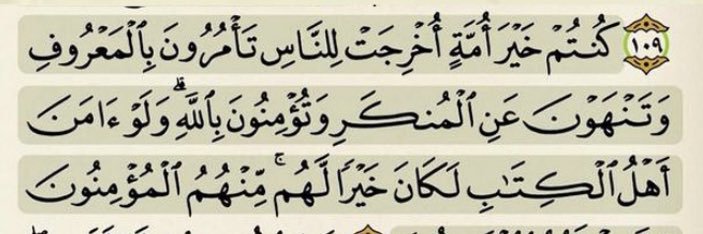 ١٠٩ كُنتُمْ خَيْرَ أُمَّةٍ أُخْرِجَتْ لِلنَّاسِ تَأْمُرُونَ بِٱلْمَعْرُوفِ
وَتَنْهَوْنَ عَنِ ٱلْمُنكَرِ وَتُؤْمِنُونَ بِٱللَّهِ ۗ وَلَوْ ءَامَنَ
أَهْلُ ٱلْكِتَـٰبِ لَكَانَ خَيْرًا لَّهُم ۚ مِّنْهُمُ ٱلْمُؤْمِنُونَ